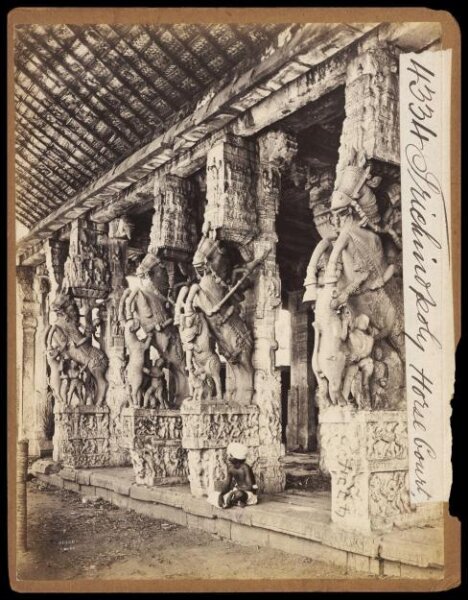 4334 Trichinopoly Horse Court.